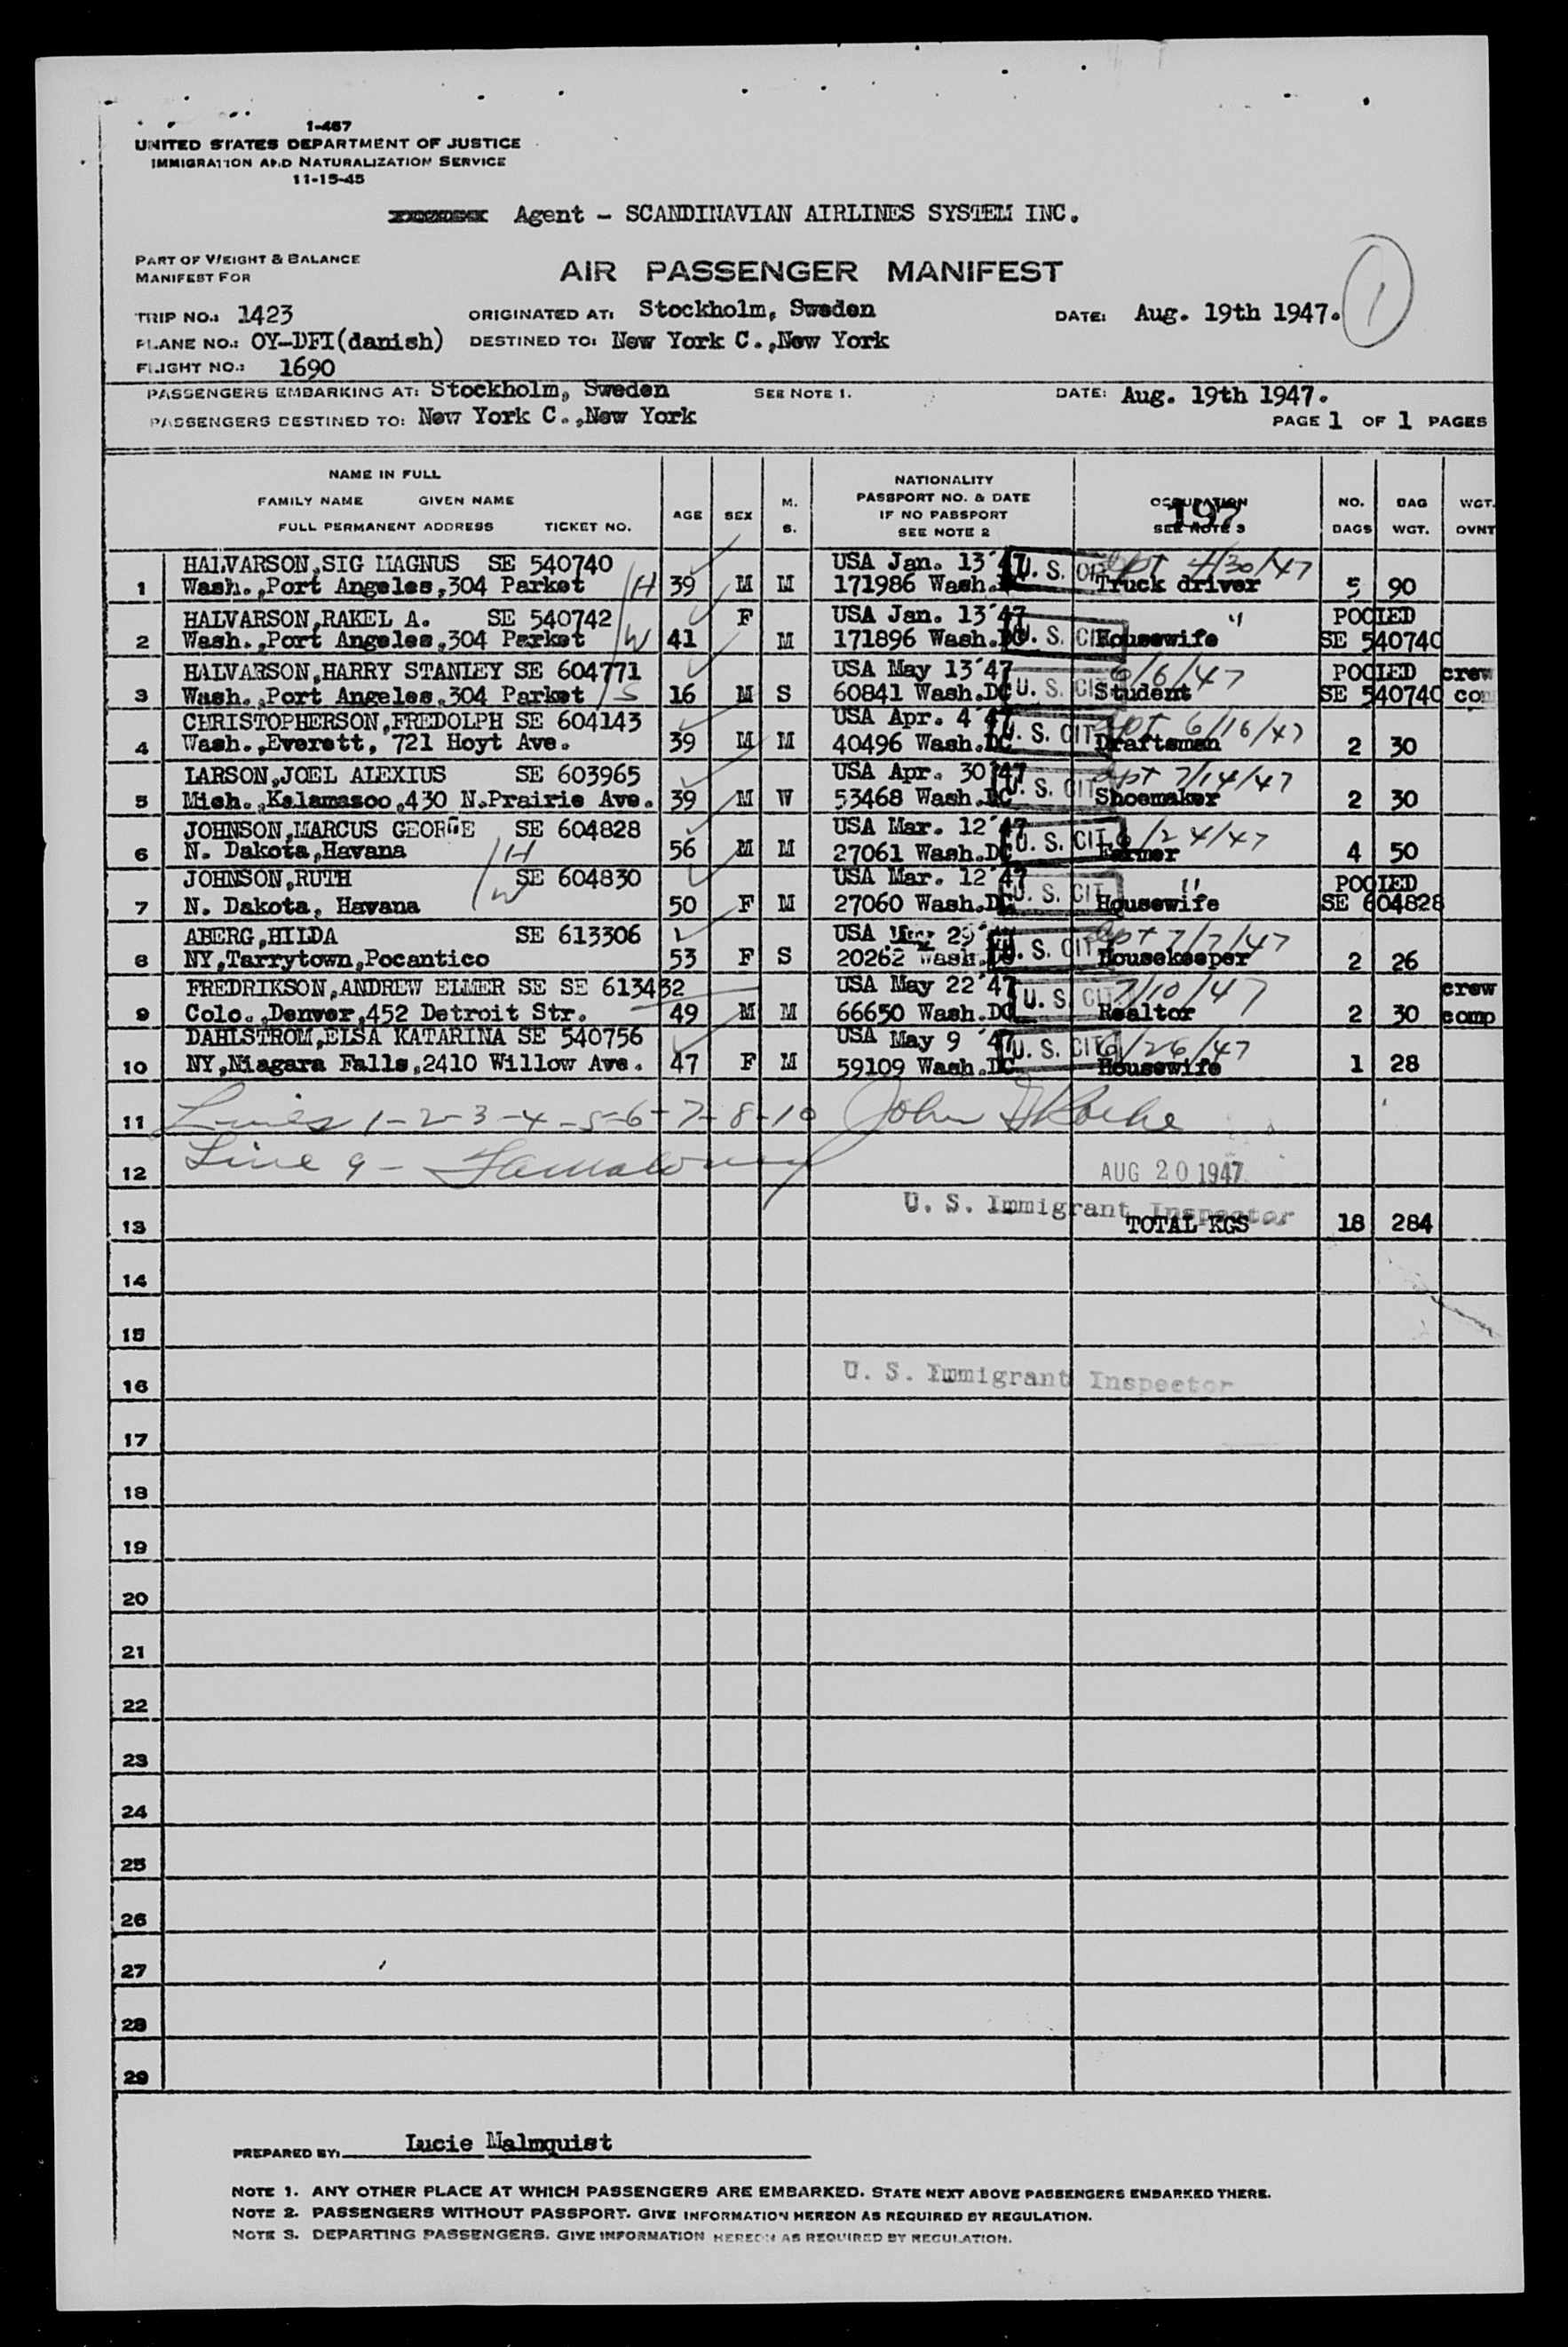 1-467
UNITED STATES DEPARTMENT OF JUSTICE
IMMIGRATION AND NATURALIZATION SERVICE
11-15-45
Agent - SCANDINAVIAN AIRLINES SYSTEM INC.
PART OF WEIGHT & BALANCE
MANIFEST FOR
AIR PASSENGER MANIFEST
1
TRIP NO.: 1423 ORIGINATED AT: Stockholm, Sweden DATE: Aug. 19th 1947.
PLANE NO.: OY-DFI(danish) DESTINED TO: New York C.,New York
FLIGHT NO.: 1690
PASSENGERS EMBARKING AT: Stockholm, Sweden SEE NOTE 1. DATE: Aug. 19th 1947.
PASSENGERS DESTINED TO: New York C.,New York PAGE 1 OF 1 PAGES
NAME IN FULL
FAMILY NAME GIVEN NAME
FULL PERMANENT ADDRESS TICKET NO.
AGE SEX M. S.
NATIONALITY
PASSPORT NO. & DATE
IF NO PASSPORT
SEE NOTE 2
OCCUPATION
197
SEE NOTE 3
NO. BAGS
BAG WGT.
WGT. OVNT
HALVARSON,SIG MAGNUS SE 540740 USA Jan. 13'47 U. S. CIT dpt 4/30/47
1 Wash.,Port Angeles,304 Parket H 39 M M 171986 Wash. Truck driver 5 90
HALVARSON,RAKEL A. SE 540742 F USA Jan. 13'47 U. S. CIT " POOLED
2 Wash.,Port Angeles,304 Parket W 41 M 171896 Wash.DC Housewife SE 540740
HALVARSON,HARRY STANLEY SE 604771 USA May 13'47 U. S. CIT 6/6/47 POOLED crew
3 Wash.,Port Angeles,304 Parket S 16 M S 60841 Wash.DC Student SE 540740
CHRISTOPHERSON,FREDOLPH SE 604143 USA Apr. 4'47 U. S. CIT dpt 6/16/47
4 Wash.,Everett, 721 Hoyt Ave. 39 M M 40496 Wash.DC Draftsman 2 30
LARSON,JOEL ALEXIUS SE 603965 USA Apr. 30'47 U. S. CIT dpt 7/14/47
5 Mich.,Kalamazoo,430 N.Prairie Ave. 39 M W 53468 Wash.DC Shoemaker 2 30
JOHNSON,MARCUS GEORGE SE 604828 USA Mar. 12'47 U. S. CIT /24/47
6 N. Dakota,Havana H 56 M M 27061 Wash.DC Farmer 4 50
JOHNSON,RUTH SE 604830 USA Mar. 12'47 U. S. CIT " POOLED
7 N. Dakota, Havana W 50 F M 27060 Wash.DC Housewife SE 604828
ABERG,HILDA SE 613306 USA 29'47 U. S. CIT dpt 7/7/47
8 NY,Tarrytown,Pocantico 53 F S 20262 Wash.DC Housekeeper 2 26
FREDRIKSON,ANDREW ELMER SE SE 613432 USA May 22'47 U. S. CIT 7/10/47 crew
9 Colo.,Denver,452 Detroit Str. 49 M M 66650 Wash.DC Realtor 2 30 comp
DAHLSTROM,ELSA KATARINA SE 540756 USA May 9 '47 U. S. CIT 6/26/47
10 NY,Niagara Falls,2410 Willow Ave. 47 F M 59109 Wash.DC Housewife 1 28
11 Lines 1-2-3-4-5-6-7-8-10 John
12 Line 9 - AUG 20 1947
U. S. Immigrant Inspector
13 TOTAL KGS 18 284
14
15
16 U. S. Immigrant Inspector
17
18
19
20
21
22
23
24
25
26
27
28
29
PREPARED BY: Lucie Malmquist
NOTE 1. ANY OTHER PLACE AT WHICH PASSENGERS ARE EMBARKED. STATE NEXT ABOVE PASSENGERS EMBARKED THERE.
NOTE 2. PASSENGERS WITHOUT PASSPORT. GIVE INFORMATION HEREON AS REQUIRED BY REGULATION.
NOTE 3. DEPARTING PASSENGERS. GIVE INFORMATION HEREON AS REQUIRED BY REGULATION.